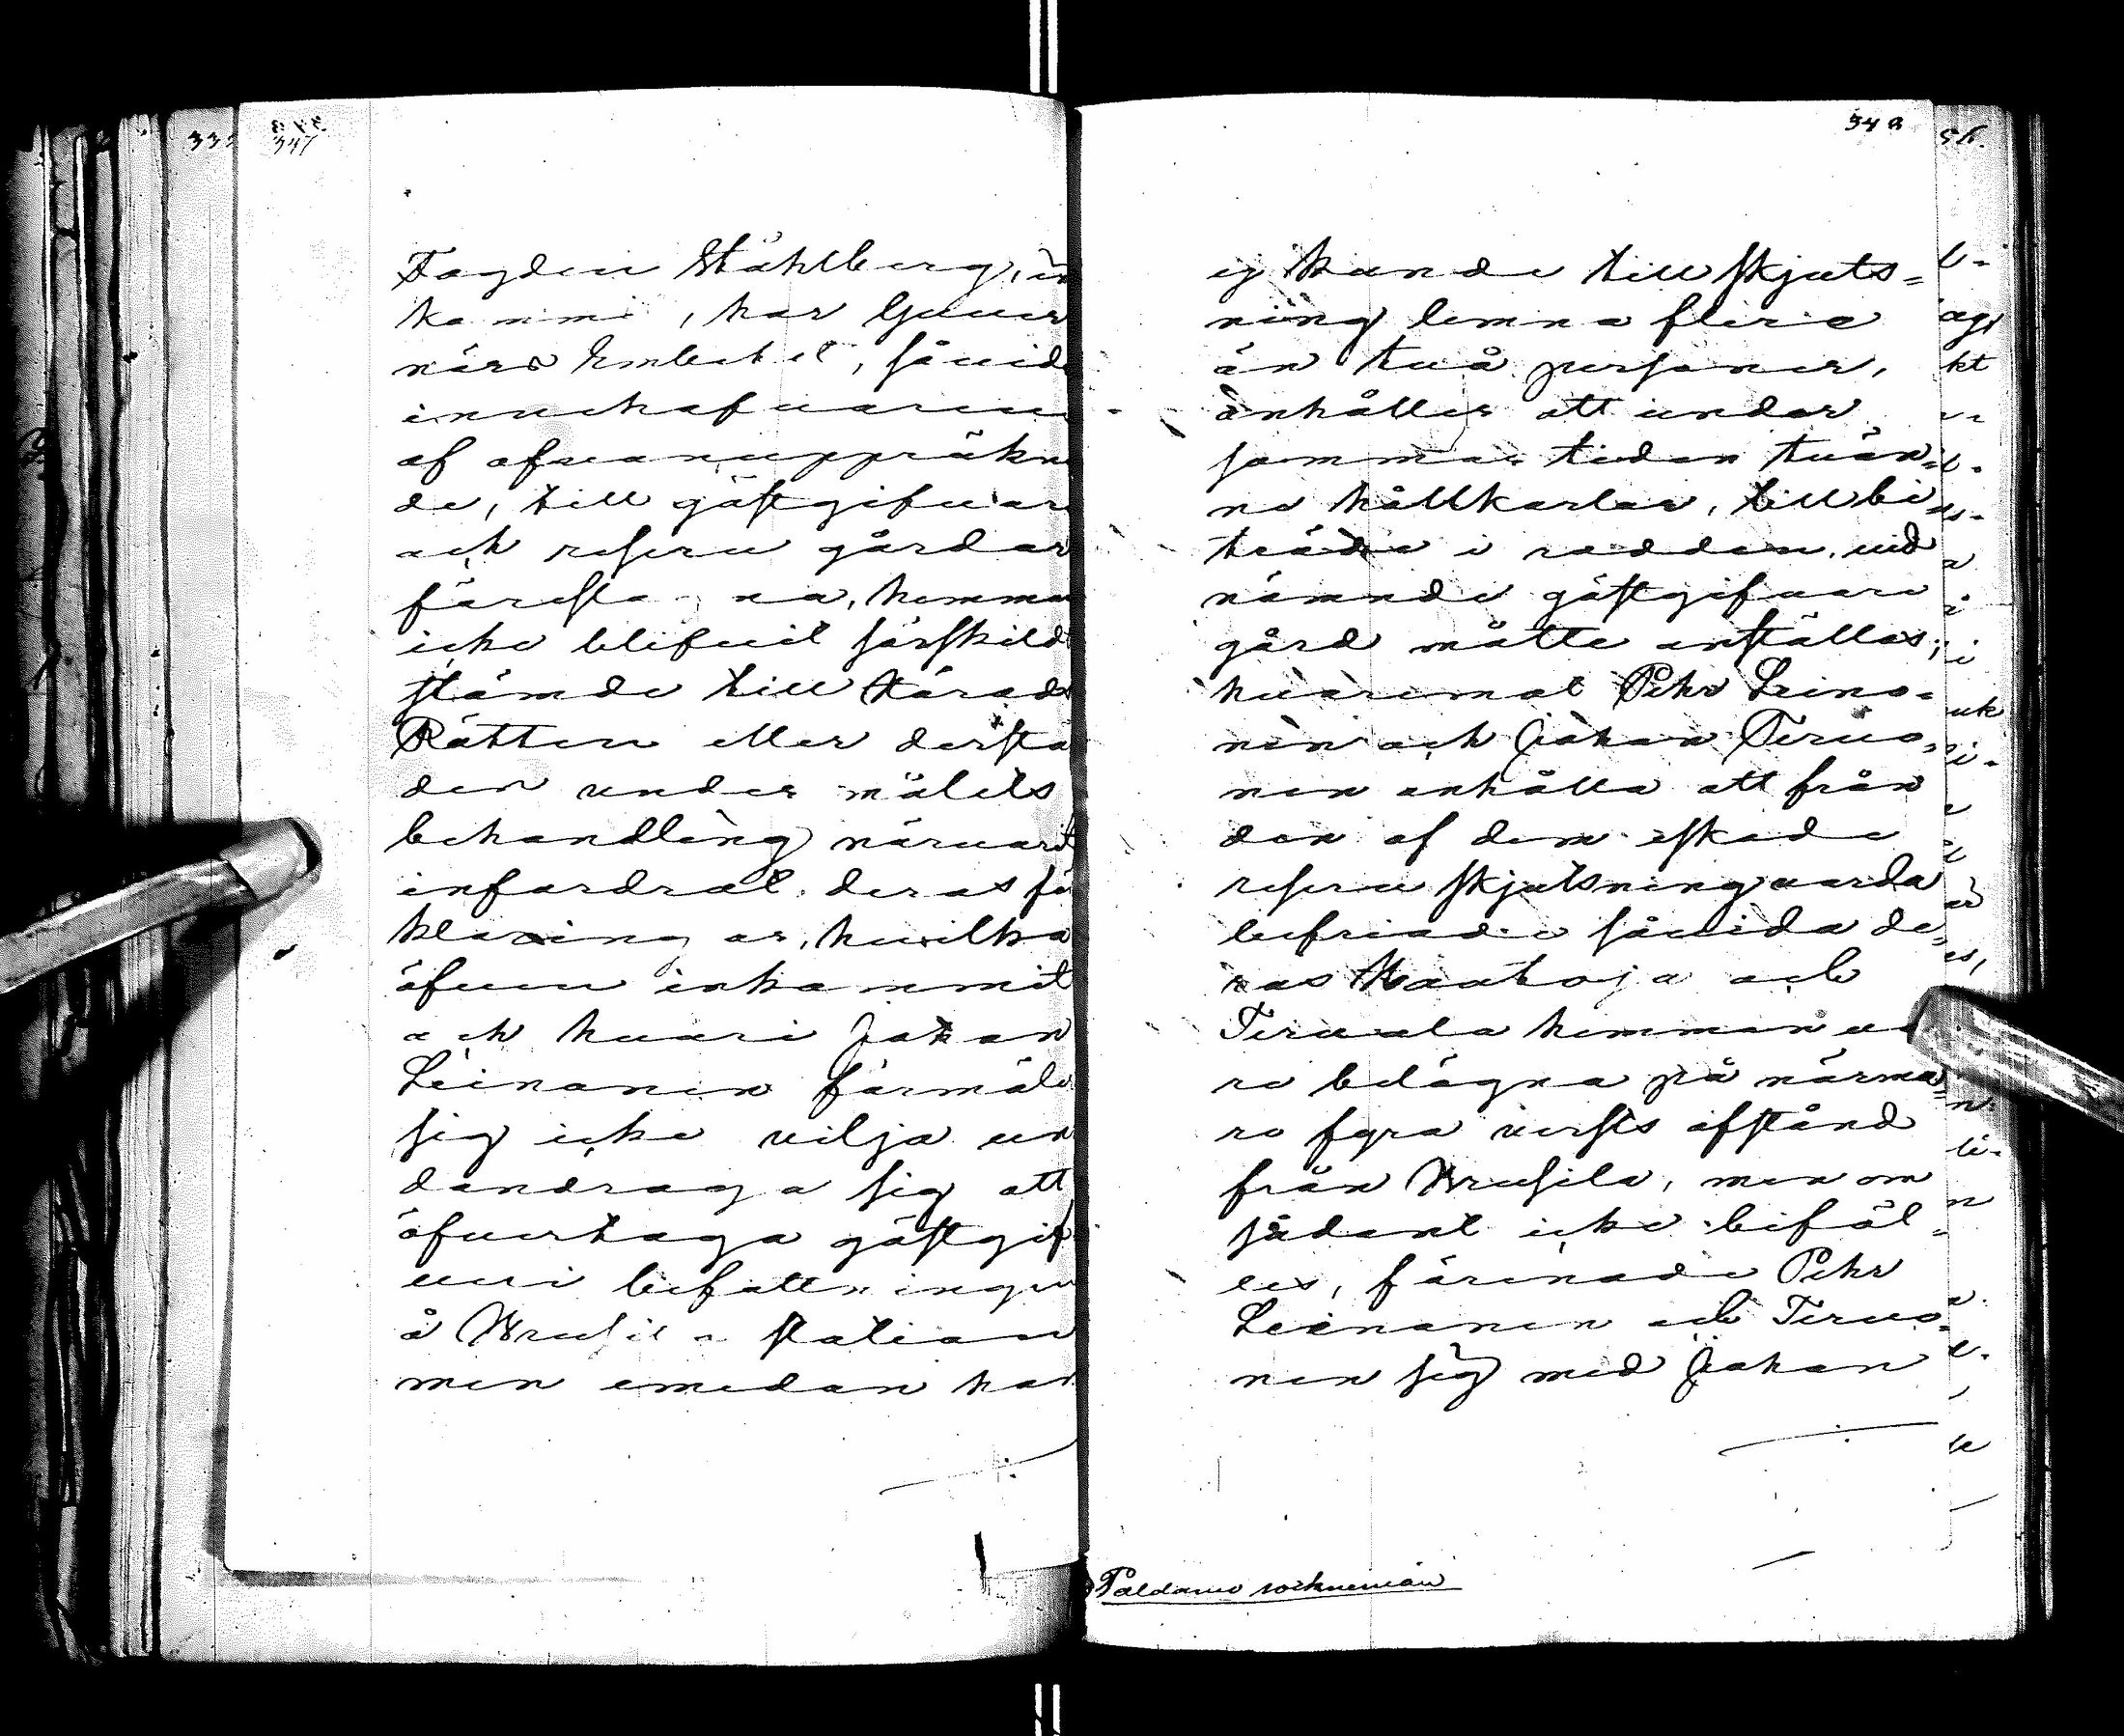 347
Fogden Ståhlberg, in
kommi, har Guver
nörs Embetet, såvid
innehafvaren
af ofvanuppräkn
de, till gästgifvar
och reserv gårdar
föresla na, hemman
icke blifvit särskildt
stämde till Härads
Rätten eller dersta
des under målets
behandling närvarit
infordrat deras för
klaringar, hvilka
äfven inkommit
och hvari Johan
Leinonen förmäle
sig icke vilja un
dandraga sig att
öfvertaga gästgif
veri befattningen
å Wrusila station
men emedan han
34
ej kunde till skjuts=
ning lemna flere
än två personer,
anhåller att under
sommar tiden tvän=
ne hållkarlar, till bi
träde i rodden, vid
nämnde gästgifvare
gård måtte anställas;
hvaremot Pehr Leino=
nen och Johan Tervo=
nen anhålla att från
den af dem eskade
reserv skjutsning varda
befriade såvida de=
ras Kautoja och
Tervola hemman vo
ro belägna på närma=
re fyra versts afstånd
från Wrusila, men om
sådant icke bifäl=
les, förenade Pehr
Leinonen och Tervo=
nen sig med Johan
Paldamo sockneman